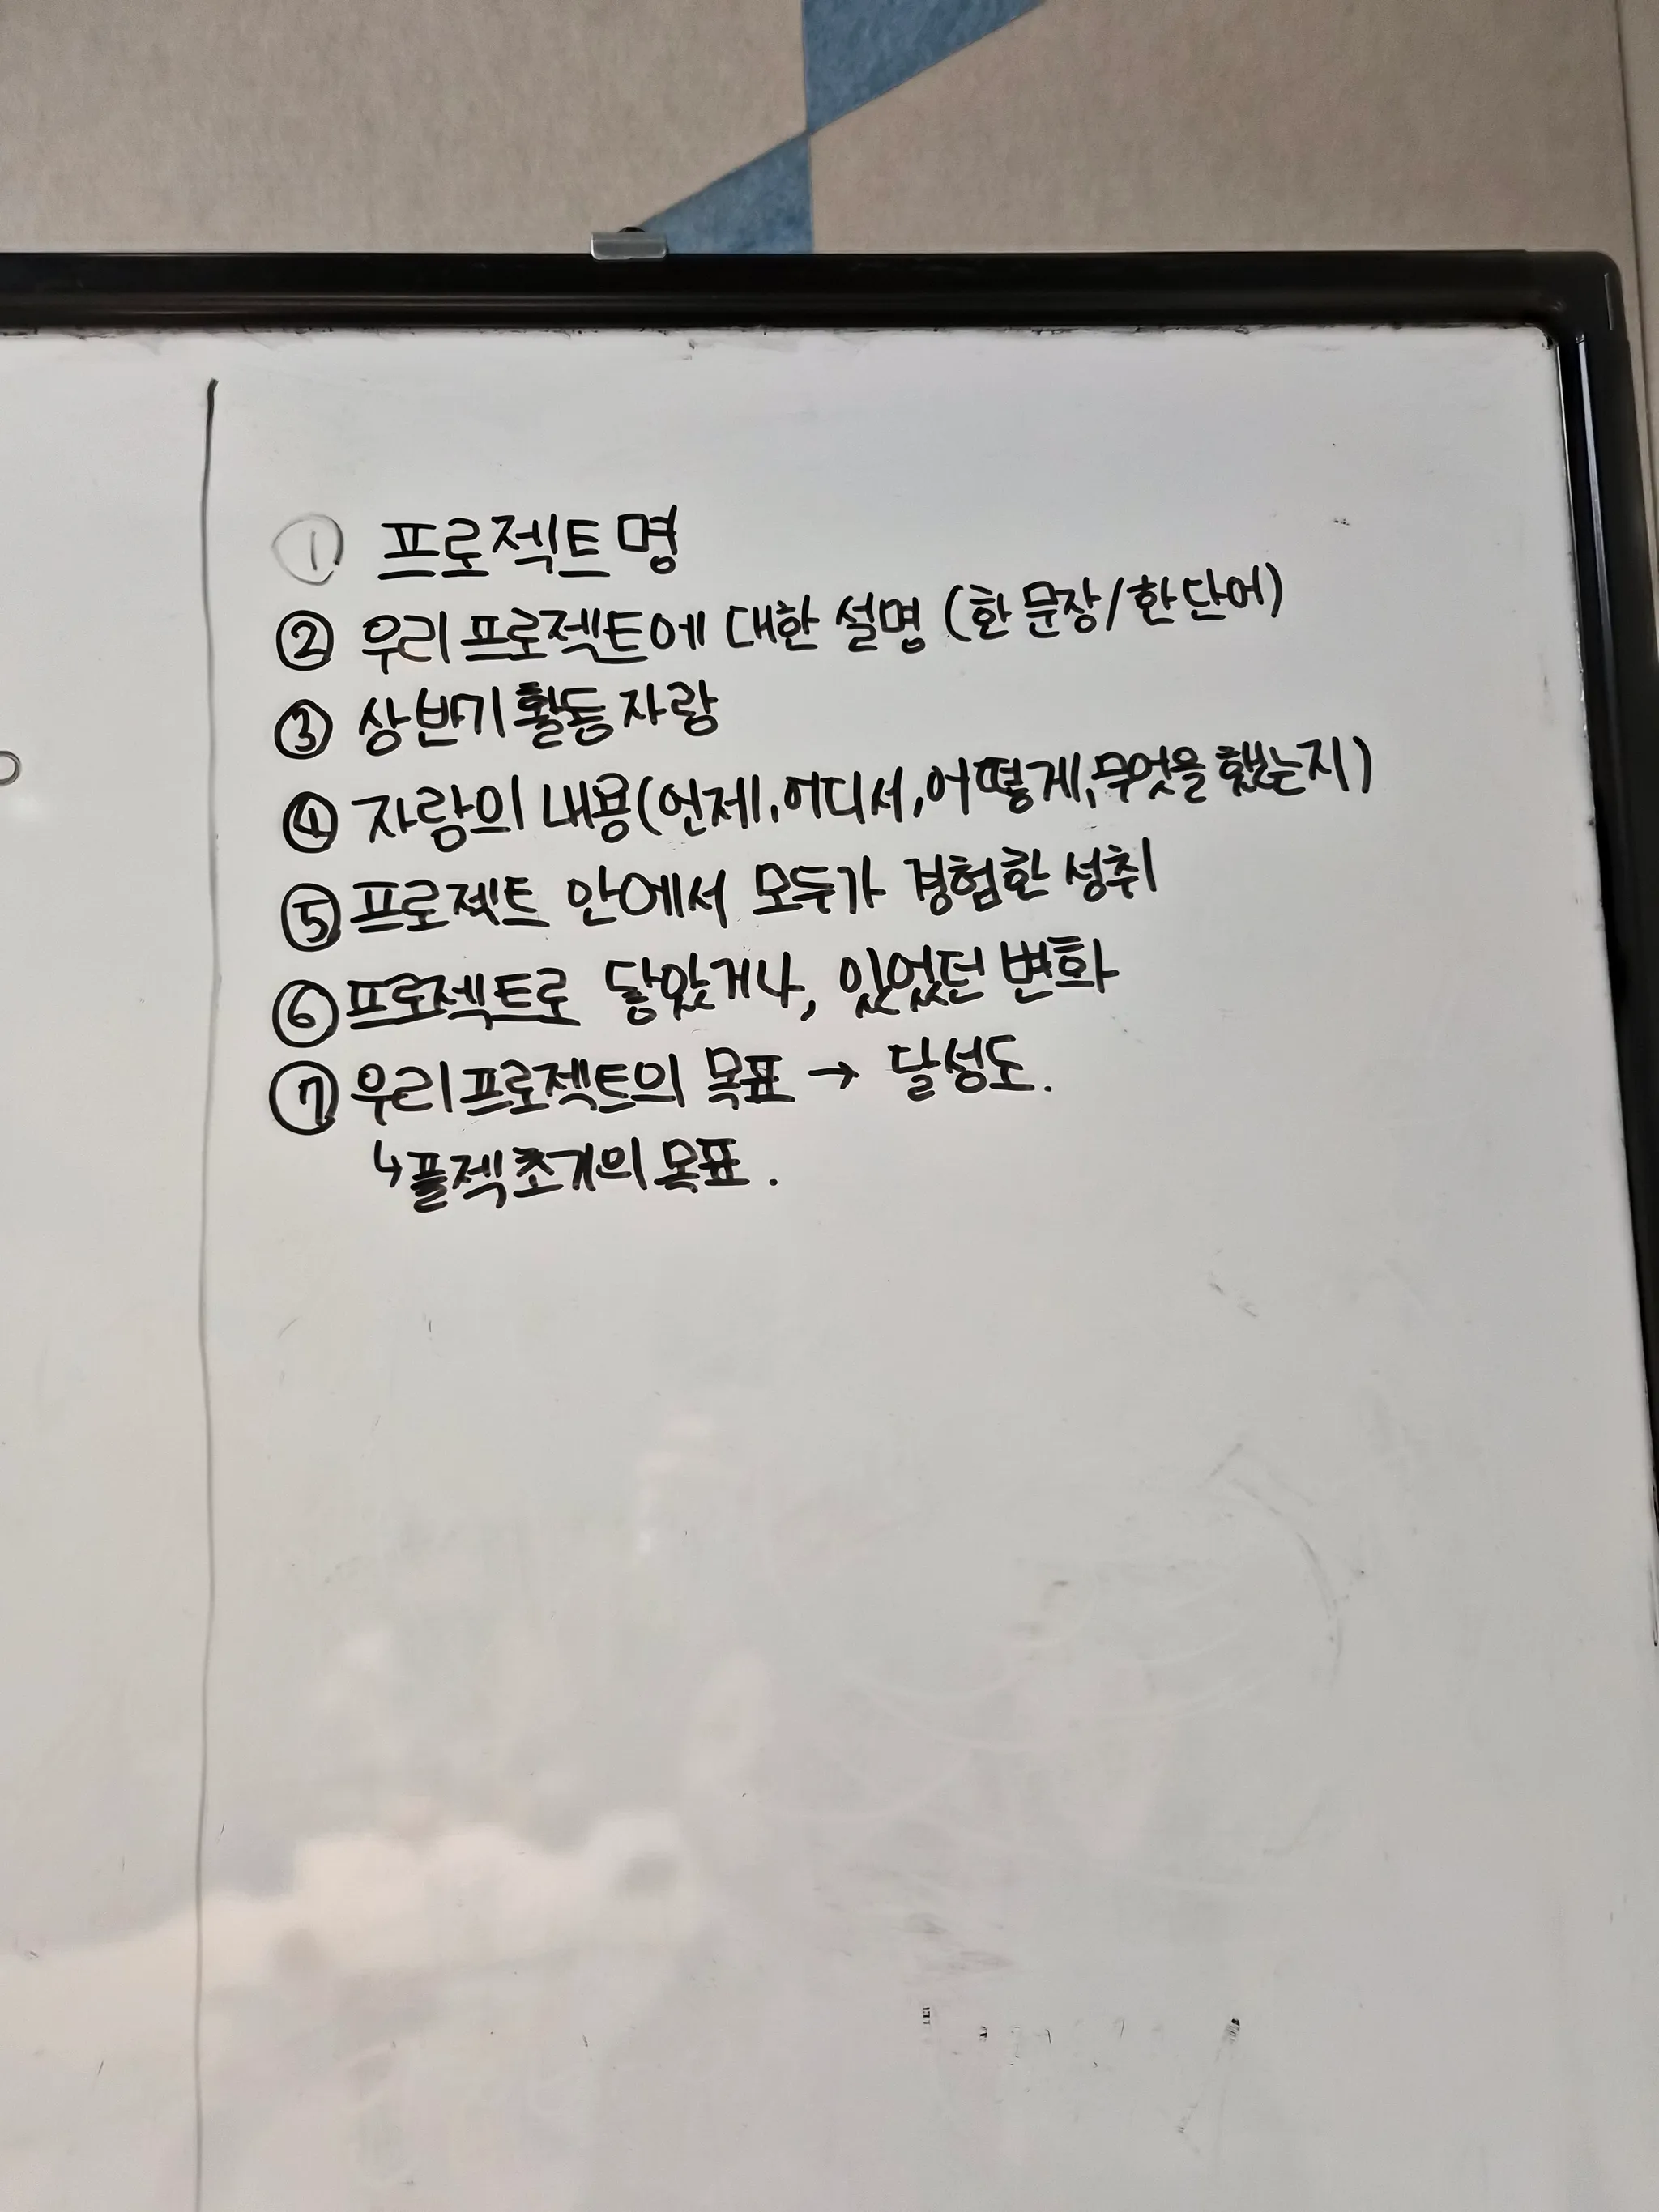 ① 프로젝트명
② 우리프로젝트에 대한 설명 (한 문장/한단어)
③ 상반기활동자랑
④ 자랑의 내용(언제, 어디서, 어떻게, 무엇을 했는지)
⑤ 프로젝트 안에서 모두가 경험한 성취
⑥ 프로젝트로 닮았거나, 있었던 변화
⑦ 우리프로젝트의 목표 → 달성도.
↳플젝초기의 목표.